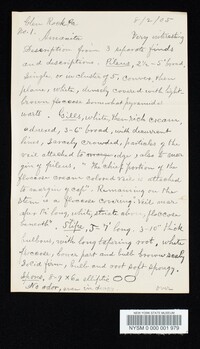 Glen Rock Pa. 8/2/05
No. 1.
Amanita Very interesting
Description from 3 separate finds
and descriptions. Pileus, 2½-5" broad,
single or in cluster of 5, convex then
plane, white, densely covered with light
brown floccose somewhat pyramidal
warts. Gills, white, then rich cream
adnexed, 3-6" broad, with decurrent
lines, scarcely crowded, particles of the
veil attached to edge, also to
gin of pileus, "The chief portion of the
floccose cream colored veil attached
to margin of cap". Remaining on the
stem is a floccose covering "veil near
apex 1½ long, white, striate above, floccose
beneath". Stipe, 5-7" long, 3-10" thick
bulbous, with long tapering root, white
floccose, lower part and bulb brown scaly
solid firm, bulb and root soft spongy.
Spores, 8-9 x 6 elliptic
No odor, even in
NEW YORK STATE MUSEUM
NYSM 0 000 001 979